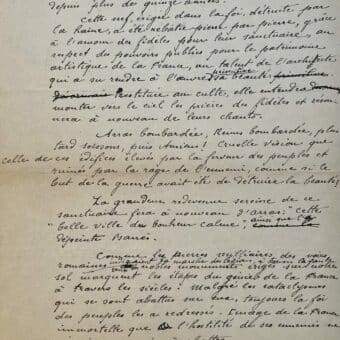 depuis plus des quinze années.
Cette nef, érigée dans la foi, détruite par
la haine, a été rebâtie pierre par pierre, grâce
à l'amour des fidèles pour leur sanctuaire, au
respect des pouvoirs publics pour le patrimoine
artistique de la France, au talent de l'architecte
qui a su rendre à l'œuvre sa beauté primitive
Désormais restituée au culte, elle entendra
monter vers le ciel les prières des fidèles et
à nouveau de leurs chants.
Arras bombardée, Reims bombardée, plus
tard Soissons, puis Amiens! Cruelle vision que
celle de ces édifices élevés par la ferveur des peuples et
ruinés par la rage de l'ennemi, comme si le
but de la guerre avait été de détruire la beauté!
La grandeur redevenue sereine de ce
sanctuaire fera à nouveau d'Arras: "cette
"belle ville du bonheur calme", ainsi que l'a
dépeinte Barrès.
Comme les pierres milliaires des voies
romaines
nobles monuments érigés sur notre
sol marquent les étapes du génie de la France
à travers les siècles! Malgré les cataclysmes
qui se sont abattus sur eux, toujours la foi
des peuples les a redressés. Image de la France
immortelle que l'hostilité de ses ennemis ne